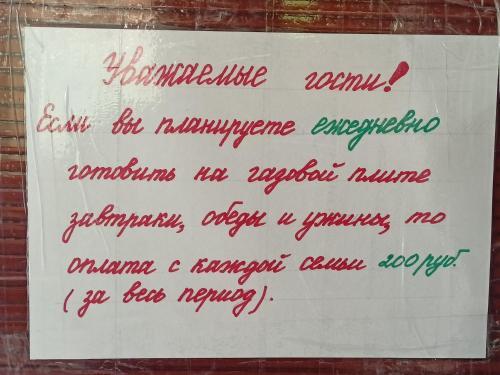 Уважаемые гости!
Если вы планируете ежедневно
готовить на газовой плите
завтраки, обеды и ужины, то
оплата с каждой семьи 200 руб.
(за весь период).